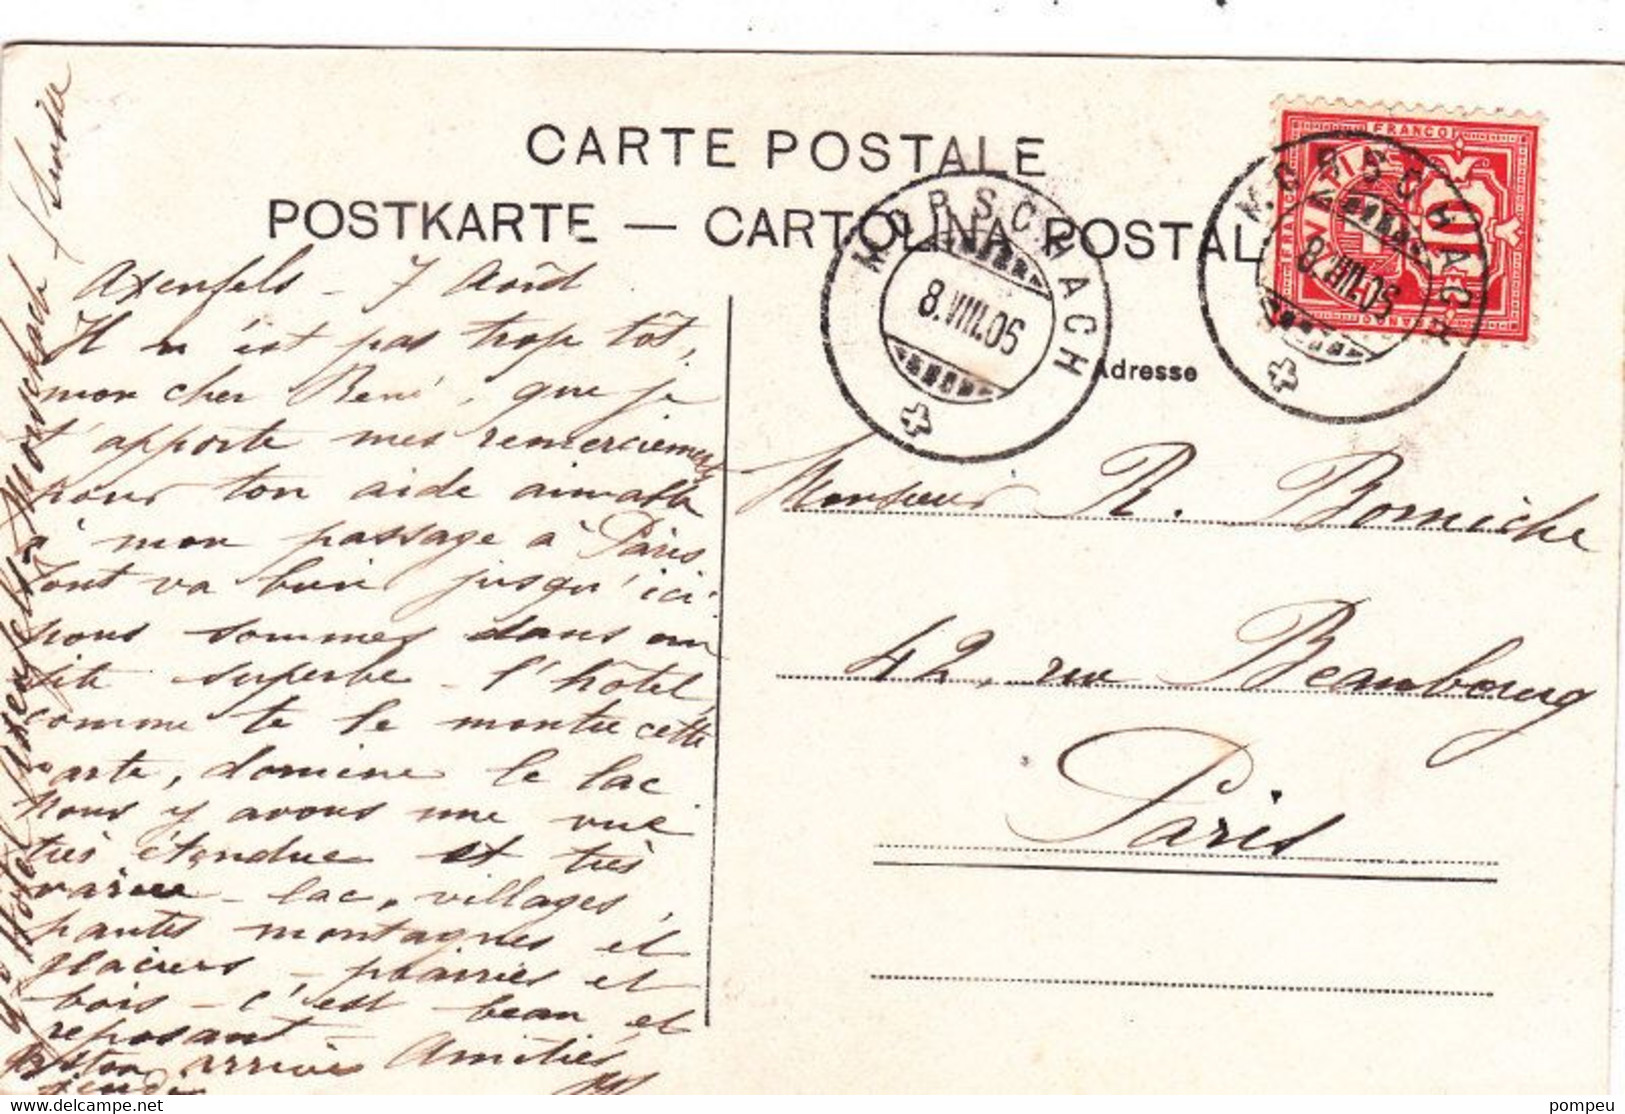 CARTE POSTALE
POSTKARTE — CARTOLINA POSTAL
MORSCHACH
8.VIII.05
MORSCHACH
8.VIII.05
FRANCO
HELVETIA
10
Adresse
Axenfels - 7 Août
Il n'est pas trop tôt,
mon cher René, que je
t'apporte mes remerciements
pour ton aide aimable
à mon passage à Paris
Tout va bien jusqu'ici
nous sommes dans un
site superbe - l'hôtel,
comme te le montre cette
carte, domine le lac
nous y avons une vue
très étendue et très
variée - lac, villages,
hautes montagnes et
glaciers - prairies et
bois - c'est beau et
reposant -
arrivés Amitiés
jeudi
Hôtel Axenfels - Morschach / Suisse
Monsieur R. Borniche
42, rue Beaubourg
Paris
pompeu